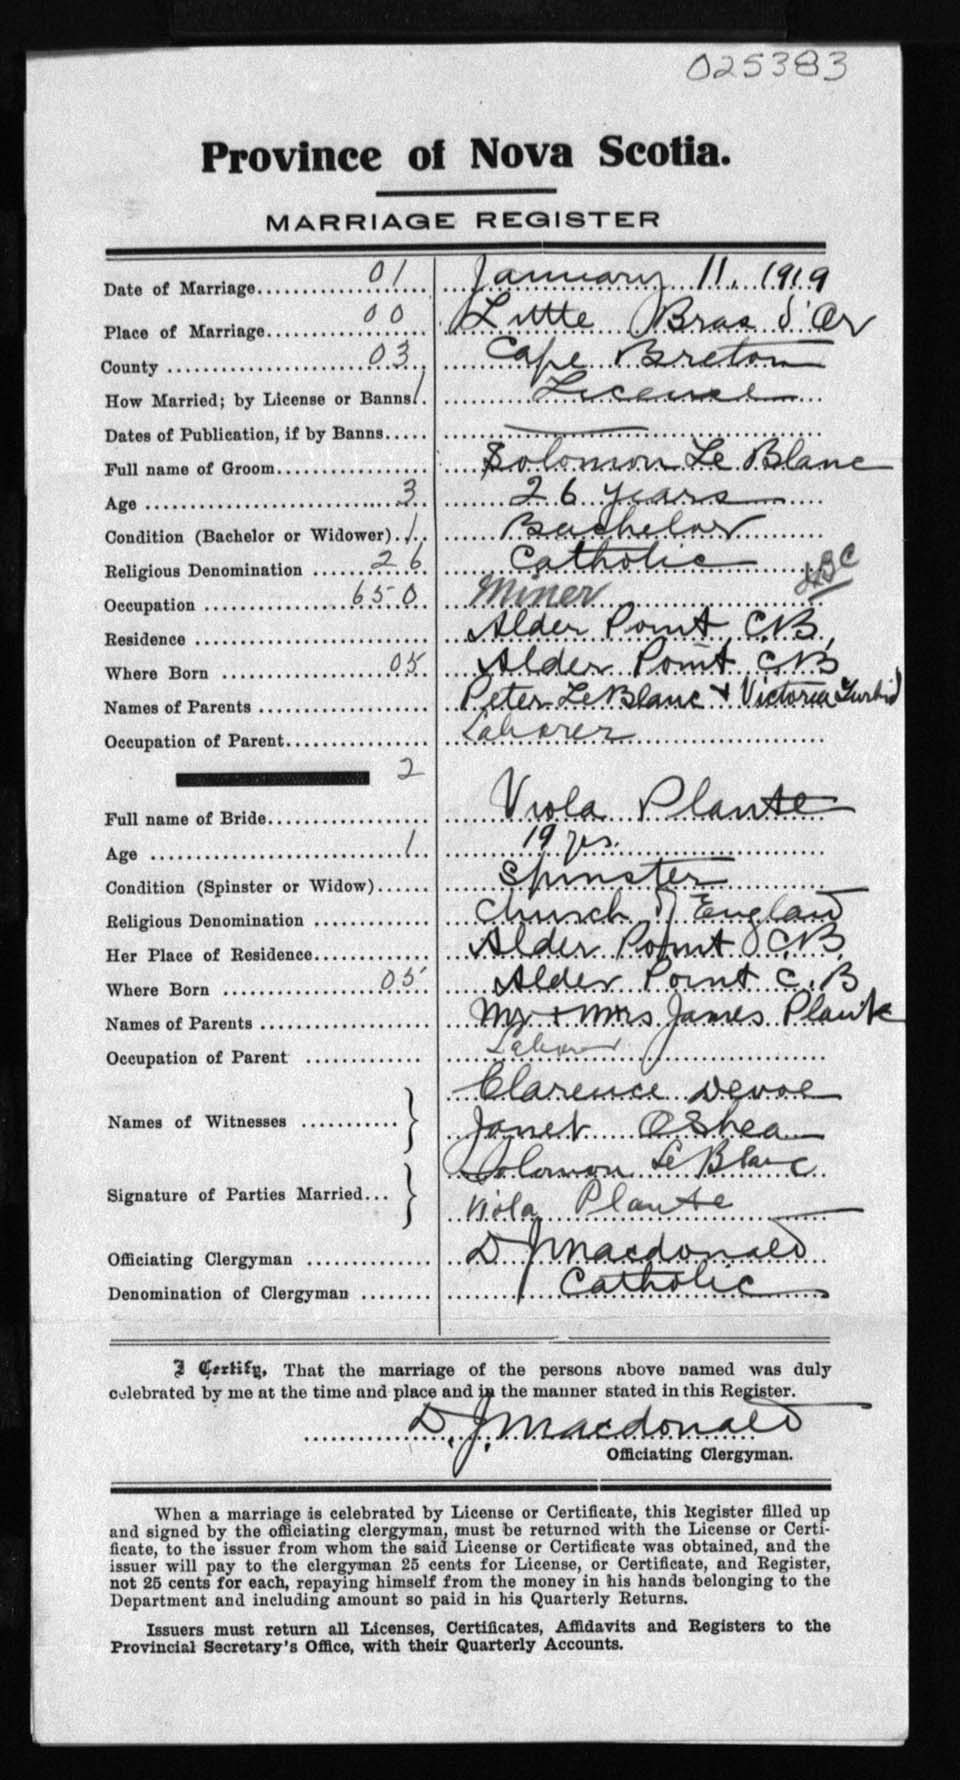 025383
Province of Nova Scotia.
MARRIAGE REGISTER
Date of Marriage 01 January 11, 1919
Place of Marriage 00 Little Bras d'Or
County 03 Cape Breton
How Married; by License or Banns 1 License
Dates of Publication, if by Banns —
Full name of Groom Solomon Le Blanc
Age 3 26 years
Condition (Bachelor or Widower) 1 Bachelor
Religious Denomination 26 Catholic
Occupation 650 Miner
Residence Alder Point C.B.
Where Born 05 Alder Point C.B
Names of Parents Peter LeBlanc + Victoria
Occupation of Parent Laborer
2
Full name of Bride Viola Plante
Age 1 19 yrs.
Condition (Spinster or Widow) Spinster
Religious Denomination Church of England
Her Place of Residence Alder Point C.B.
Where Born 05 Alder Point C.B
Names of Parents Mr + Mrs James Plante
Occupation of Parent Labor
Names of Witnesses } Clarence Devoe
Janet OShea
Signature of Parties Married... } Solomon Le Blanc
Viola Plante
Officiating Clergyman D J Macdonald
Denomination of Clergyman Catholic
I Certify, That the marriage of the persons above named was duly
celebrated by me at the time and place and in the manner stated in this Register.
D. J. Macdonald
Officiating Clergyman.
When a marriage is celebrated by License or Certificate, this Register filled up
and signed by the officiating clergyman, must be returned with the License or Certi-
ficate, to the issuer from whom the said License or Certificate was obtained, and the
issuer will pay to the clergyman 25 cents for License, or Certificate, and Register,
not 25 cents for each, repaying himself from the money in his hands belonging to the
Department and including amount so paid in his Quarterly Returns.
Issuers must return all Licenses, Certificates, Affidavits and Registers to the
Provincial Secretary's Office, with their Quarterly Accounts.